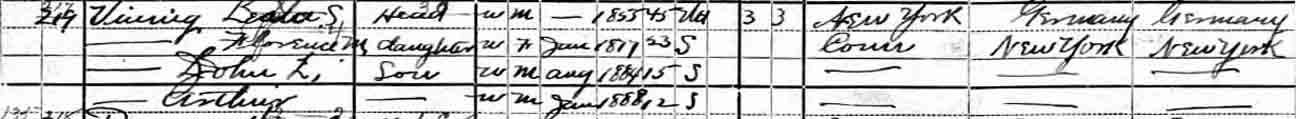 219 Vining Head W M — 1855 45 Wd 3 3 New York Germany Germany
— Florence M daughter W F Jan 1877 23 S Conn New York New York
— John L, Son W M Aug 1884 15 S — — —
— Arthur — W M Jan 1888 12 S — — —